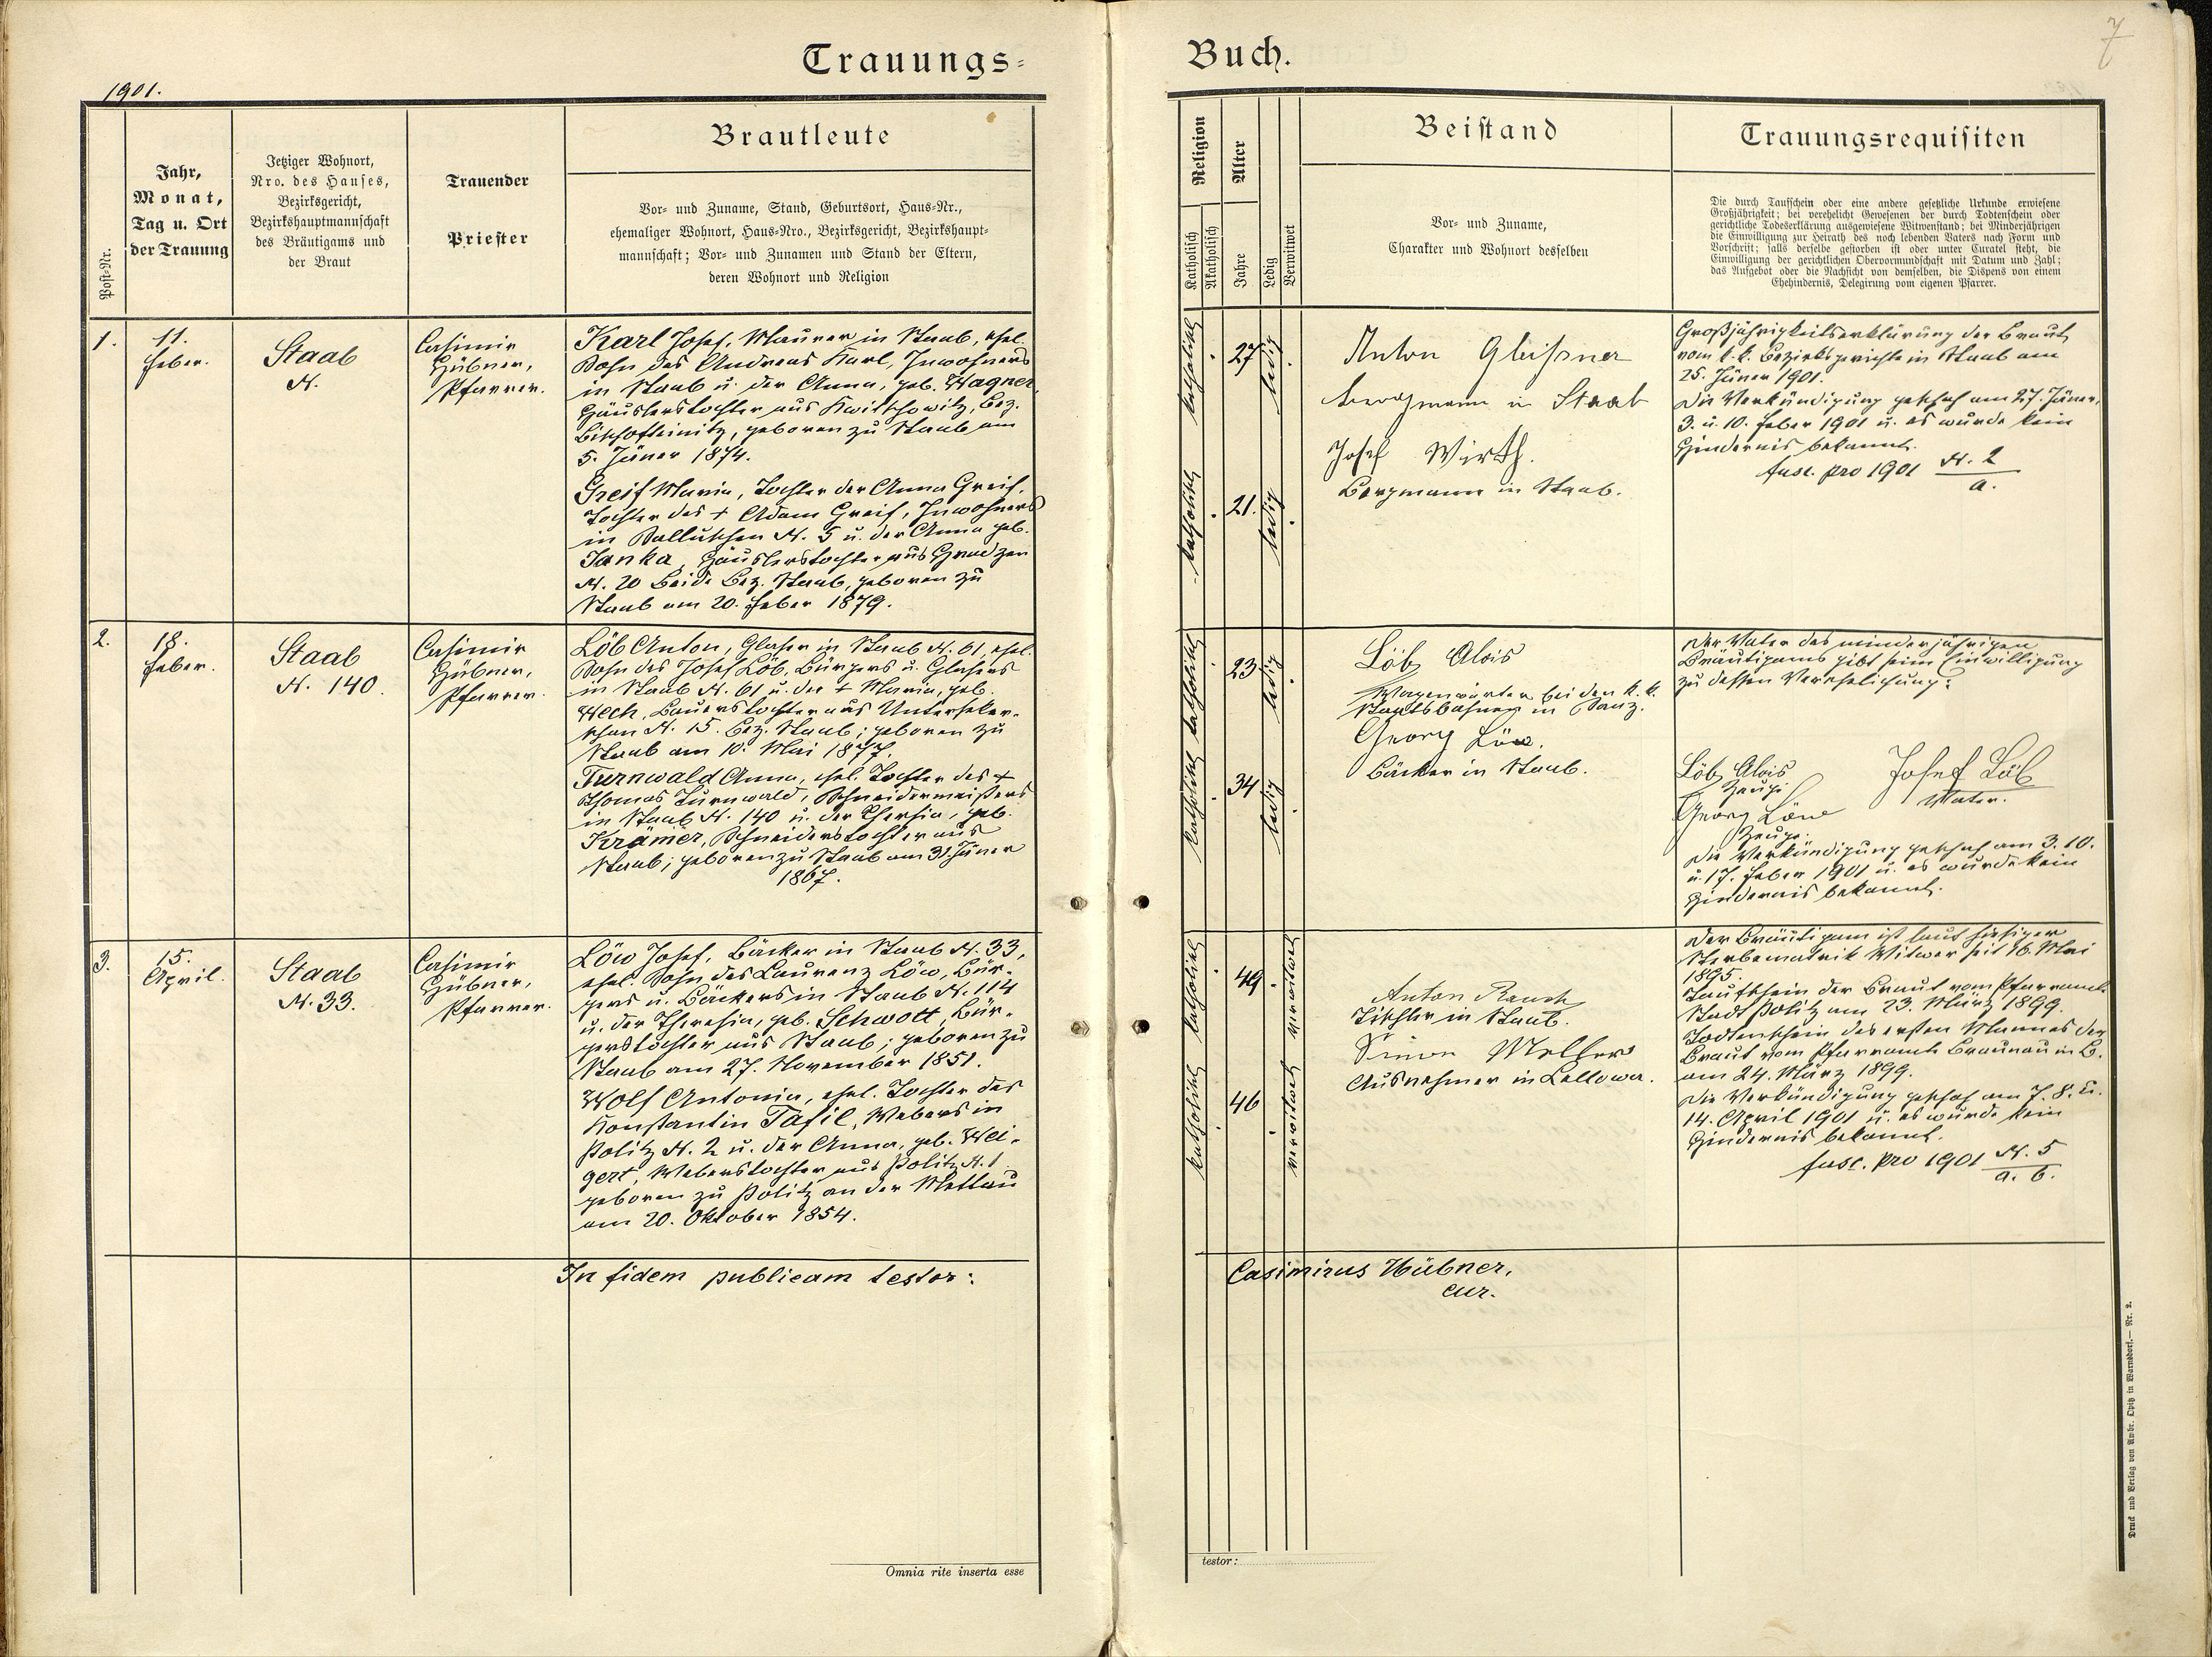 Trauungs-
1901.
Post-Nr.
Jahr,
Monat,
Tag u. Ort
der Trauung
Jetziger Wohnort,
Nro. des Hauses,
Bezirksgericht,
Bezirkshauptmannschaft
des Bräutigams und
der Braut
Trauender
Priester
Brautleute
Vor- und Zuname, Stand, Geburtsort, Haus-Nr.,
ehemaliger Wohnort, Haus-Nro., Bezirksgericht, Bezirkshaupt-
mannschaft; Vor- und Zunamen und Stand der Eltern,
deren Wohnort und Religion
1.
11.
Feber.
Staab
N.
Casimir
Hübner,
Pfarrer.
Karl Josef, Maurer in Staab, ehel.
Sohn des Andreas Karl, Inwohners
in Staab u. der Anna, geb. Wagner,
Häuslerstochter aus Kwitschowitz, Bez.
Bischofteinitz, geboren zu Staab am
5. Jäner 1874.
Greif Maria, Tochter der Anna Greif,
Tochter des + Adam Greif, Inwohners
in N. 5 u. der Anna geb.
Janka, Häuslerstochter aus
N. 20 beide Bez. Staab, geboren zu
Staab am 20. Feber 1879.
2.
18.
Feber.
Staab
N. 140.
Casimir
Hübner,
Pfarrer.
Löb Anton, Glaser in Staab N. 61, ehel.
Sohn des Josef Löb, Bürgers u. Glasers
in Staab N. 61 u. der + Maria, geb.
Hech, Bauerstochter aus Unterseker-
schan N. 15. Bez. Staab; geboren zu
Staab am 10. Mai 1877.
Turnwald Anna, ehel. Tochter des +
Thomas Turnwald, Schneidermeisters
in Staab N. 140 u. der Thersia, geb.
Krämer, Schneiderstochter aus
Staab; geboren zu Staab am 31. Jäner
1867.
3.
15.
April.
Staab
N. 33.
Casimir
Hübner,
Pfarrer.
Löw Josef, Bäcker in Staab N. 33,
ehel. Sohn des Laurenz Löw, Bür-
gers u. Bäckers in Staab N. 114
u. der Theresia, geb. Schwott, Bür-
gerstochter aus Staab; geboren zu
Staab am 27. November 1851.
Wolf Antonia, ehel. Tochter des
Konstantin Tafil, Webers in
Politz N. 2 u. der Anna, geb. Wei-
gert, Weberstochter aus Politz N. 1
geboren zu Politz an der Mettau
am 20. Oktober 1854.
In fidem publicam testor:
Omnia rite inserta esse
Buch.
7
Religion
Katholisch
Akatholisch
Alter
Jahre
Ledig
Verwitwet
Beistand
Vor- und Zuname,
Charakter und Wohnort desselben
Trauungsrequisiten
Die durch Taufschein oder eine andere gesetzliche Urkunde erwiesene
Großjährigkeit; bei verehelicht Gewesenen der durch Todtenschein oder
gerichtliche Todeserklärung ausgewiesene Witwenstand; bei Minderjährigen
die Einwilligung zur Heirath des noch lebenden Vaters nach Form und
Vorschrift; falls derselbe gestorben ist oder unter Curatel steht, die
Einwilligung der gerichtlichen Obervormundschaft mit Datum und Zahl;
das Aufgebot oder die Nachsicht von demselben, die Dispens von einem
Ehehindernis, Delegirung vom eigenen Pfarrer.
katholisch
27
ledig
katholisch
21.
ledig
Anton Gleißner
Bergmann in Staab
Josef Wirth.
Bergmann in Staab.
Großjährigkeitserklärung der Braut
vom k. k. Bezirksgerichte in Staab am
25. Jäner 1901.
Die Verkündigung geschah am 27. Jäner,
3. u. 10. Feber 1901 u. es wurde kein
Hindernis bekannt.
fasc. pro 1901 N. 2
a.
katholisch
23
ledig
katholisch
34
ledig
Löb Alois
Wagenwärter bei den k. k.
Staatsbahnen in
Georg Löw.
Bäcker in Staab.
Der Vater des minderjährigen
Bräutigams gibt seine Einwilligung
zu dessen Verehelichung:
Löb Alois
Zeuge
Josef Löb
Vater.
Georg Löw
Zeuge.
Die Verkündigung geschah am 3. 10.
u. 17. Feber 1901 u. es wurde kein
Hindernis bekannt.
katholisch
49
verwitwet
katholisch
46
verwitwet
Anton Rausch
Tischler in Staab.
Simon
Ausnehmer in Lellowa.
Der Bräutigam ist laut hiesiger
Sterbematrik Witwer seit 16. Mai
1895.
Taufschein der Braut vom Pfarramte
Stadt Politz am 23. März 1899.
Todtenschein des ersten Mannes der
Braut vom Pfarramte Braunau in B.
am 24. März 1899.
Die Verkündigung geschah am 7. 8. u.
14. April 1901 u. es wurde kein
Hindernis bekannt.
fasc. pro 1901 N. 5
a. b.
Casimirus Hübner,
cur.
testor:
Druck und Verlag von Ambr. Opitz in Warnsdorf. — Nr. 2.